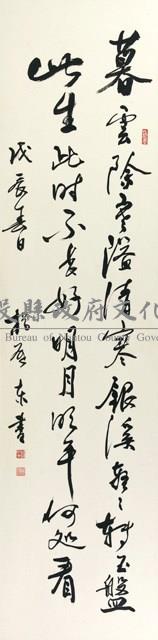 暮雲收盡溢清寒銀漢無聲轉玉盤
此生此时不長好明月明年何処看
戊辰春日 東書
投縣政府文化
Bureau of Nantou County Gove